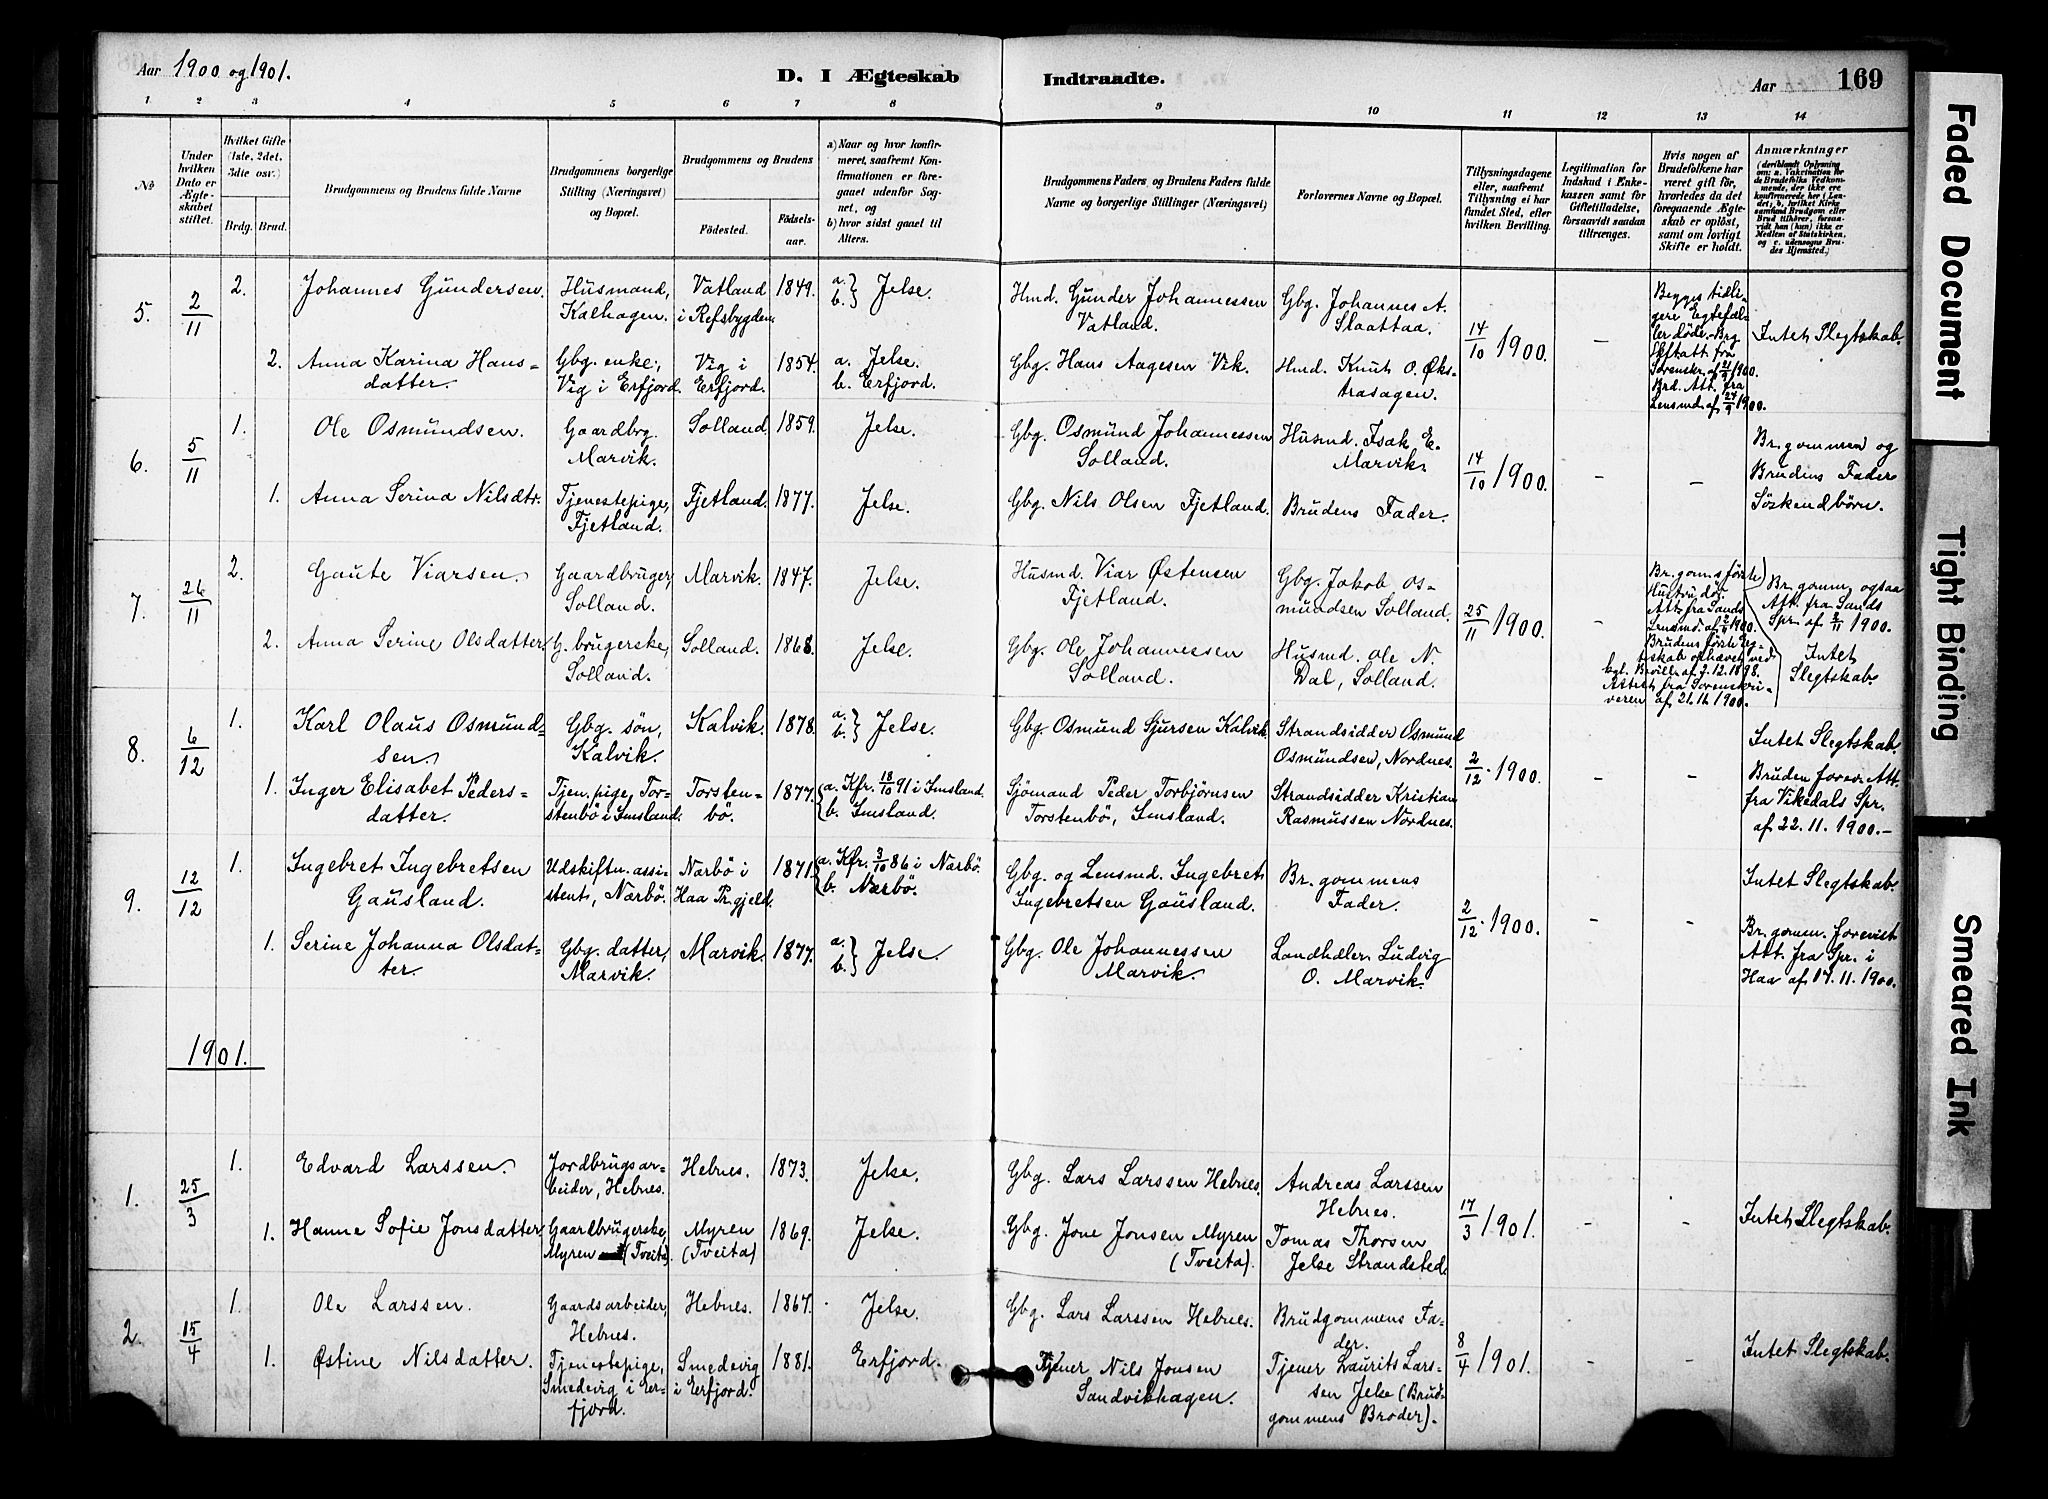 Aar 1900 og 1901.
D. I Ægteskab Indtraadte.
Aar
169
1 2 3 4 5 6 7 8 9 10 11 12 13 14
No
Under hvilken Dato er Ægteskabet stiftet.
Hvilket Gifte (1ste, 2det, 3die osv.)
Brdg. Brud.
Brudgommens og Brudens fulde Navne
Brudgommens og Brudens borgerlige Stilling (Næringsvei) og Bopæl.
Brudgommens og Brudens
Födested.
Födselsaar.
a) Naar og hvor konfirmeret, saafremt Konfirmationen er foregaaet udenfor Sognet, og
b) hvor sidst gaaet til Alters.
Brudgommens Faders og Brudens Faders fulde Navne og borgerlige Stillinger (Næringsvei)
Forlovernes Navne og Bopæl.
Tillysningsdagene eller, saafremt Tillysning ei har fundet Sted, efter hvilken Bevilling.
Legitimation for Indskud i Enkekassen samt for Giftetilladelse, forsaavidt saadan tiltrænges.
Hvis nogen af Brudefolkene har været gift før, hvorledes da det foregaaende Ægteskab er opløst, samt om lovligt Skifte er holdt.
Anmærkninger
5. 2/11 2. Johannes Gundersen. Husmand, Kalhagen. Vatland i Refsbygden. 1849. a. b. } Jelse. Hmd. Gunder Johannessen Vatland. Gbg. Johannes A. Slaattaa. 14/10 1900. – Begges tidligere Egtefæller døde. Brg Skiftatt fra Sorenskr. af 21/9 1900. Brd. Att. fra Lensmd. af 24/9 1900. Intet Slegtskab.
2. Anna Karina Hansdatter. Gbg. enke, Vig i Erfjord. Vig i Erfjord. 1854. a. Jelse. b. Erfjord. Gbg. Hans Aagesen Vik. Hmd. Knut O. Økstrasagen.
6. 5/11 1. Ole Osmundsen. Gaardbrg. Marvik. Solland. 1859. Jelse. Gbg. Osmund Johannessen Solland. Husmd. Isak E. Marvik. 14/10 1900. – – Br. gommen og Brudens Fader Söskendbörn.
1. Anna Serina Nilsdtr. Tjenestepige, Fjetland. Fjetland. 1877. Jelse. Gbg. Nils Olsen Fjetland. Brudens Fader.
7. 26/11 2. Gaute Viarsen. Gaardbruger, Solland. Marvik. 1847. Jelse. Husmd. Viar Østensen Fjetland. Gbg. Jakob Osmundsen Solland. 25/11 1900. – Br. goms første Hustru død. Att. fra Sands Lensmd. af 1900. Brudens første Egteskab ophævet ved kgl. Bevill. af 7.12.1898. Attest fra Sorenskriveren af 21.11.1900. Br. gomm. ogsaa Att. fra Sands Spr. af 2/11 1900. Intet Slegtskab.
2. Anna Serine Olsdatter. G. brugerske, Solland. Solland. 1868. Jelse. Gbg. Ole Johannessen Solland. Husmd. Ole N. Dal, Solland.
8. 6/12 1. Karl Olaus Osmundsen. Gbg. søn, Kalvik. Kalvik. 1878. a. b. } Jelse. Gbg. Osmund Sjursen Kalvik. Strandsidder Osmund Osmundsen, Nordnes. 2/12. 1900. – – Intet Slegtskab. Bruden forev. Att. fra Vikedals Spr. af 22.11.1900.–
1. Inger Elisabet Pedersdatter. Tjen. pige, Torstenbö i Imsland. Torstenbö. 1877. a. Kfr. 18/10 91 i Imsland. b. Imsland. Sjömand Peder Torbjörnsen Torstenbö, Imsland. Strandsidder Kristian Rasmussen Nordnes.
9. 12/12 1. Ingebret Ingebretsen Gausland. Udskiftn. assistent, Nærbö. Nærbö i Haa Pr. gjeld. 1871. a. Kfr. 3/10 86 i Nærbö. b. Nærbö. Gbg. og Lensmd. Ingebret Ingebretsen Gausland. Br. gommens Fader. 2/12. 1900. – – Intet Slegtskab. Br. gomm. forevist Att. fra Spr. i Haa af 17.11.1900.
1. Serine Johanna Olsdatter. Gbg. datter, Marvik. Marvik. 1877. a. b. } Jelse. Gbg. Ole Johannessen Marvik. Landhdler. Ludvig O. Marvik.
1901.
1. 25/3 1. Edvard Larssen. Jordbrugsarbeider, Hebnes. Hebnes. 1873. Jelse. Gbg. Lars Larssen Hebnes. Andreas Larssen Hebnes. 17/3 1901. – – Intet Slegtskab.
1. Hanne Sofie Jonsdatter. Gaardbrugerske, Myren (Tveita). Myren (Tveita) 1869. Jelse. Gbg. Jone Jonsen Myren (Tveita). Tomas Thorsen Jelse Strandsted.
2. 15/4 1. Ole Larssen. Gaardsarbeider, Hebnes. Hebnes. 1867. Jelse. Gbg. Lars Larssen Hebnes. Brudgommens Fader. 8/4 1901. – – Intet Slegtskab.
1. Østine Nilsdatter. Tjenestepige, Smedevig i Erfjord. Smedevig i Erfjord. 1881. Erfjord. Tjener Nils Jonsen Sandvikhagen. Tjener Laurits Larssen Jelse (Brudgommens Broder).
Faded Document
Tight Binding
Smeared Ink